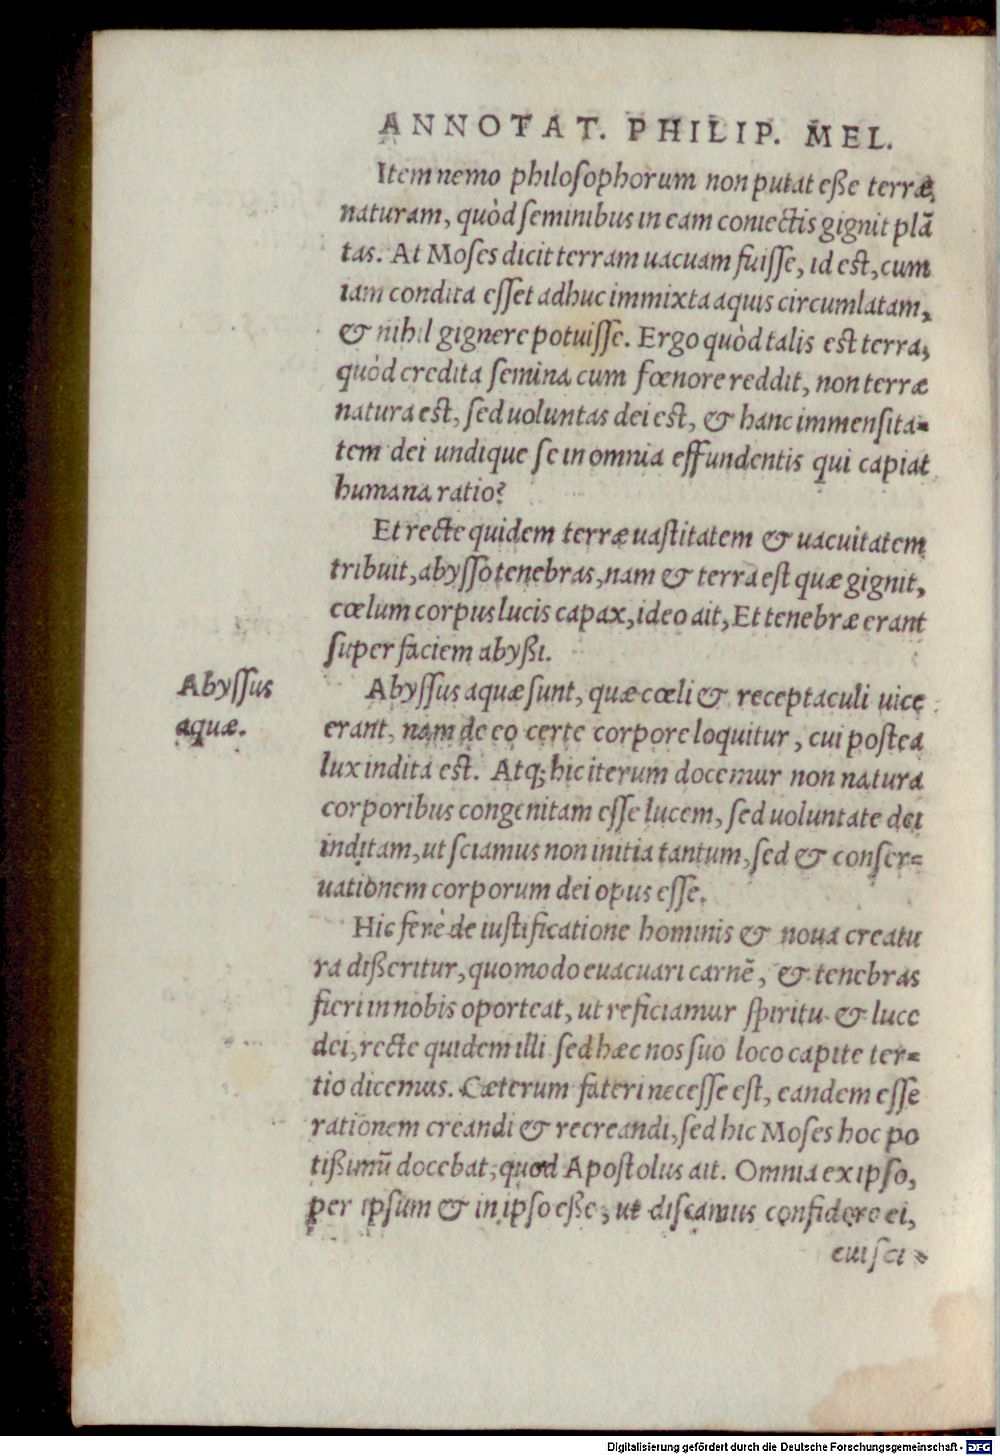 ANNOTAT. PHILIP. MEL.
Item nemo philosophorum non putat eße terræ
naturam, quòd seminibus in eam coniectis gignit plā
tas. At Moses dicit terram uacuam fuisse, id est, cum
iam condita esset adhuc immixta aquis circumlatam,
& nihil gignere potuisse. Ergo quòd talis est terra,
quòd credita semina cum fœnore reddit, non terræ
natura est, sed uoluntas dei est, & hanc immensita-
tem dei undique se in omnia effundentis qui capiat
humana ratio?
Et recte quidem terræ uastitatem & uacuitatem
tribuit, abysso tenebras, nam & terra est quæ gignit,
cœlum corpus lucis capax, ideo ait, Et tenebræ erant
super faciem abyßi.
Abyssus
aquæ.
Abyssus aquæ sunt, quæ cœli & receptaculi uice
erant, nam de eo certe corpore loquitur, cui postea
lux indita est. Atq; hic iterum docemur non natura
corporibus congenitam esse lucem, sed uoluntate dei
inditam, ut sciamus non initia tantum, sed & conser-
uationem corporum dei opus esse.
Hic ferè de iustificatione hominis & noua creatu
ra dißeritur, quomodo euacuari carnē, & tenebras
fieri in nobis oporteat, ut reficiamur spiritu & luce
dei, recte quidem illi sed hæc nos suo loco capite ter-
tio dicemus. Cæterum fateri necesse est, eandem esse
rationem creandi & recreandi, sed hic Moses hoc po
tißimū docebat, quod Apostolus ait. Omnia ex ipso,
per ipsum & in ipso eße, ut discamus confidere ei,
cui sci-
Digitalisierung gefördert durch die Deutsche Forschungsgemeinschaft - DFG